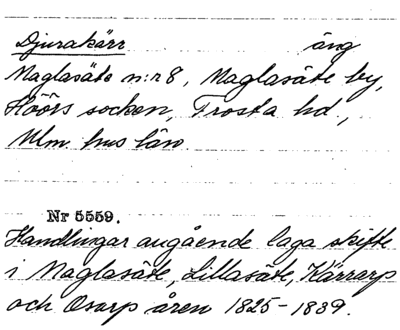 Djurakärr äng
Maglasäte n:r 8, Maglasäte by,
Höörs socken, Frosta hd,
Mlm. hus län.
Nr 5559.
Handlingar angående laga skifte
i Maglasäte, Lillasäte, Kärrarp
och Osarp åren 1825-1839.